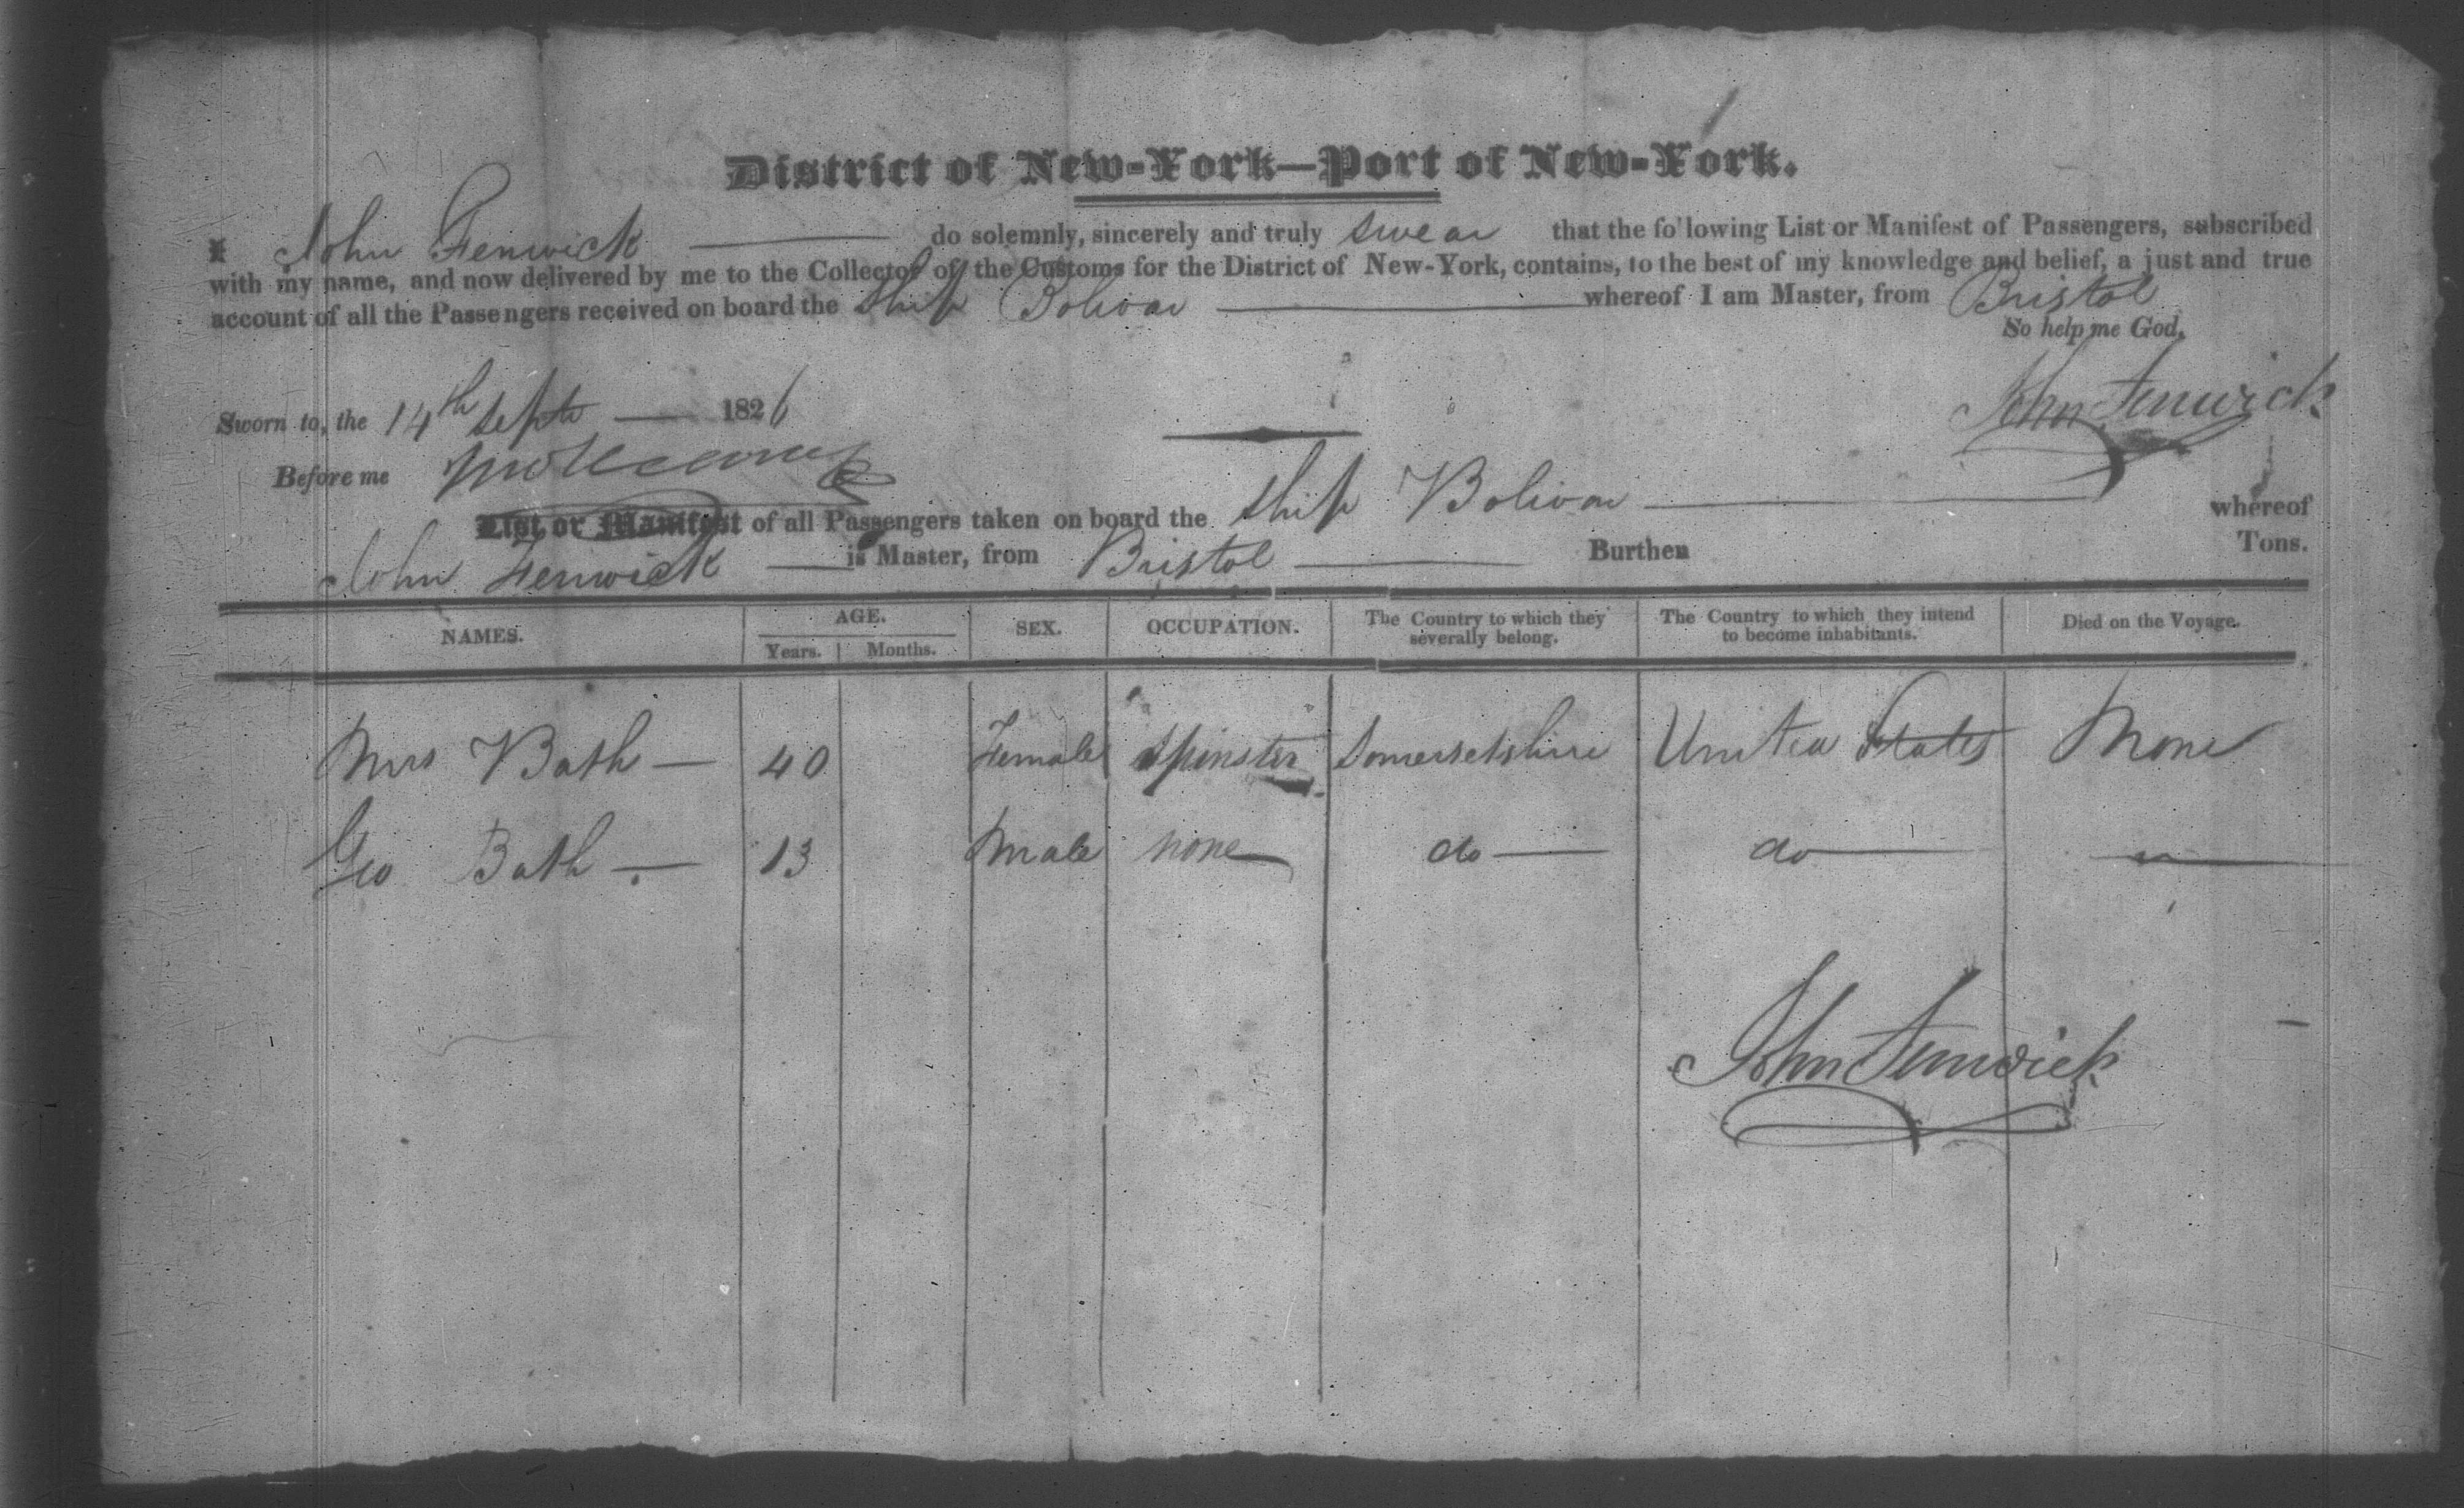 District of New-York—Port of New-York.
I John Fenwick do solemnly, sincerely and truly swear that the fo'lowing List or Manifest of Passengers, subscribed
with my name, and now delivered by me to the Collector of the Customs for the District of New-York, contains, to the best of my knowledge and belief, a just and true
account of all the Passengers received on board the Ship Bolivar whereof I am Master, from Bristol
So help me God.
John Fenwick
Sworn to, the 14th Sept 1826
Before me
List or Manifest of all Passengers taken on board the Ship Bolivar whereof
John Fenwick is Master, from Bristol Burthen Tons.
NAMES. AGE. SEX. OCCUPATION. The Country to which they severally belong. The Country to which they intend to become inhabitants. Died on the Voyage.
Years. Months.
Mrs Bath — 40 Female Spinster Somersetshire United States None
Geo Bath — 13 Male none do — do —
John Fenwick